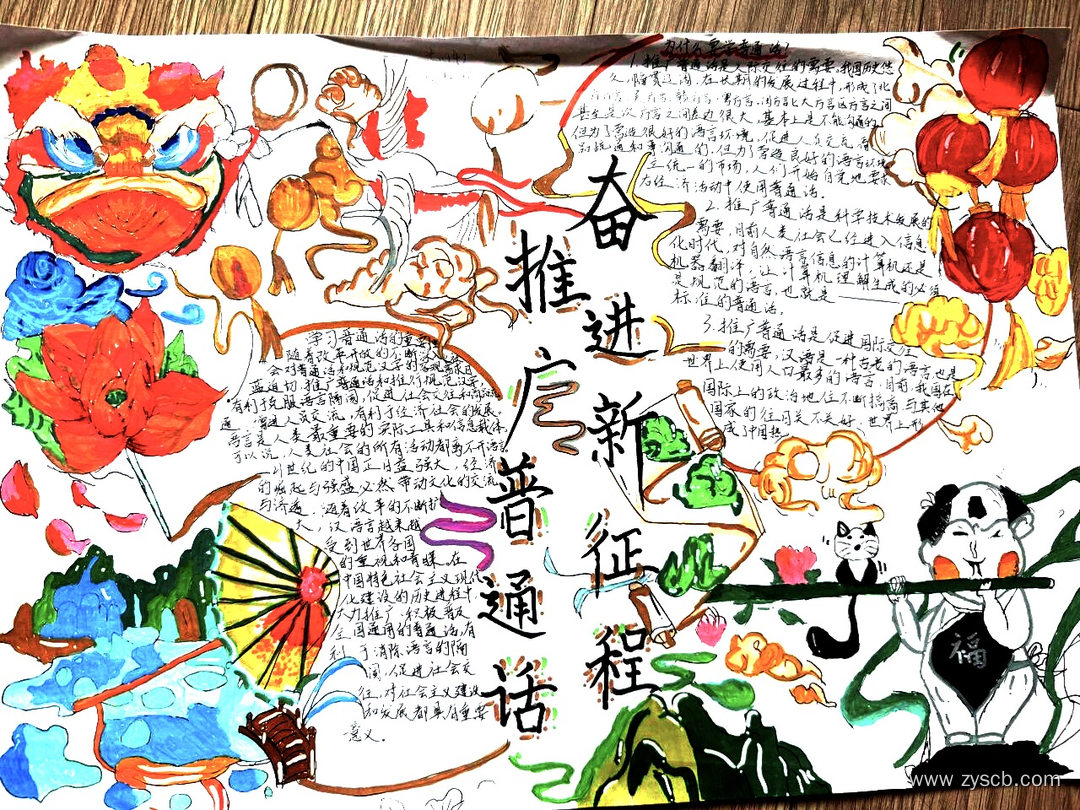 推广普通话
奋进新征程
为什么要学普通话?
1.推广普通话是人际交往的需要。我国历史悠
久,幅员辽阔,在长期的发展过程中,形成了北
甚至是次方言之间差边很大,基本上是不能沟通的
但为了营造很好的语言环境,促进人员交流,有
别统通和事沟通的,但为了营造良好的语言环境
立统一的市场,人们开始自觉地要求
在经济活动中使用普通话。
2.推广普通话是科学技术发展的
需要,目前人类社会已经进入信息
化时代,对自然语言信息的计算机还是
机器翻译,让计算机理解生成的必须
是规范的语言,也就是
标准的普通话。
3.推广普通话是促进国际交往
的需要,汉语是一种古老的语言也是
世界上使用人口最多的语言,目前,我国在
国际上的政治地位不断搞高与其他
国家的往同关不美好,世界上形
成了中国热
学习普通话的重要
随着改革开放的不断
会对普通话和规范汉字的客观需求日
益迫切,推广普通话和推行规范汉字,
有利于克服语言隔阂,促进社会交往和
通,增进人员交流,有利于经济社会的发展
语言是人类最重要的交际工具和信息载体
可以说,人类社会的所有活动都离不开语言
21世纪的中国正日益强大,经济
的崛起与强盛必然带动文化的交流
与沟通,随着改革的不断扩
大,汉语言越来越
受到世界各国
的重视和青睐。在
中国特色社会主义现代
化建设的历史进程中
大力推广,积极普及
全国通用的普通话,有
利于消除语言的隔
阂,促进社会交
往,对社会主义建设
和发展都具有重要
意义。
福
www.zyscb.com